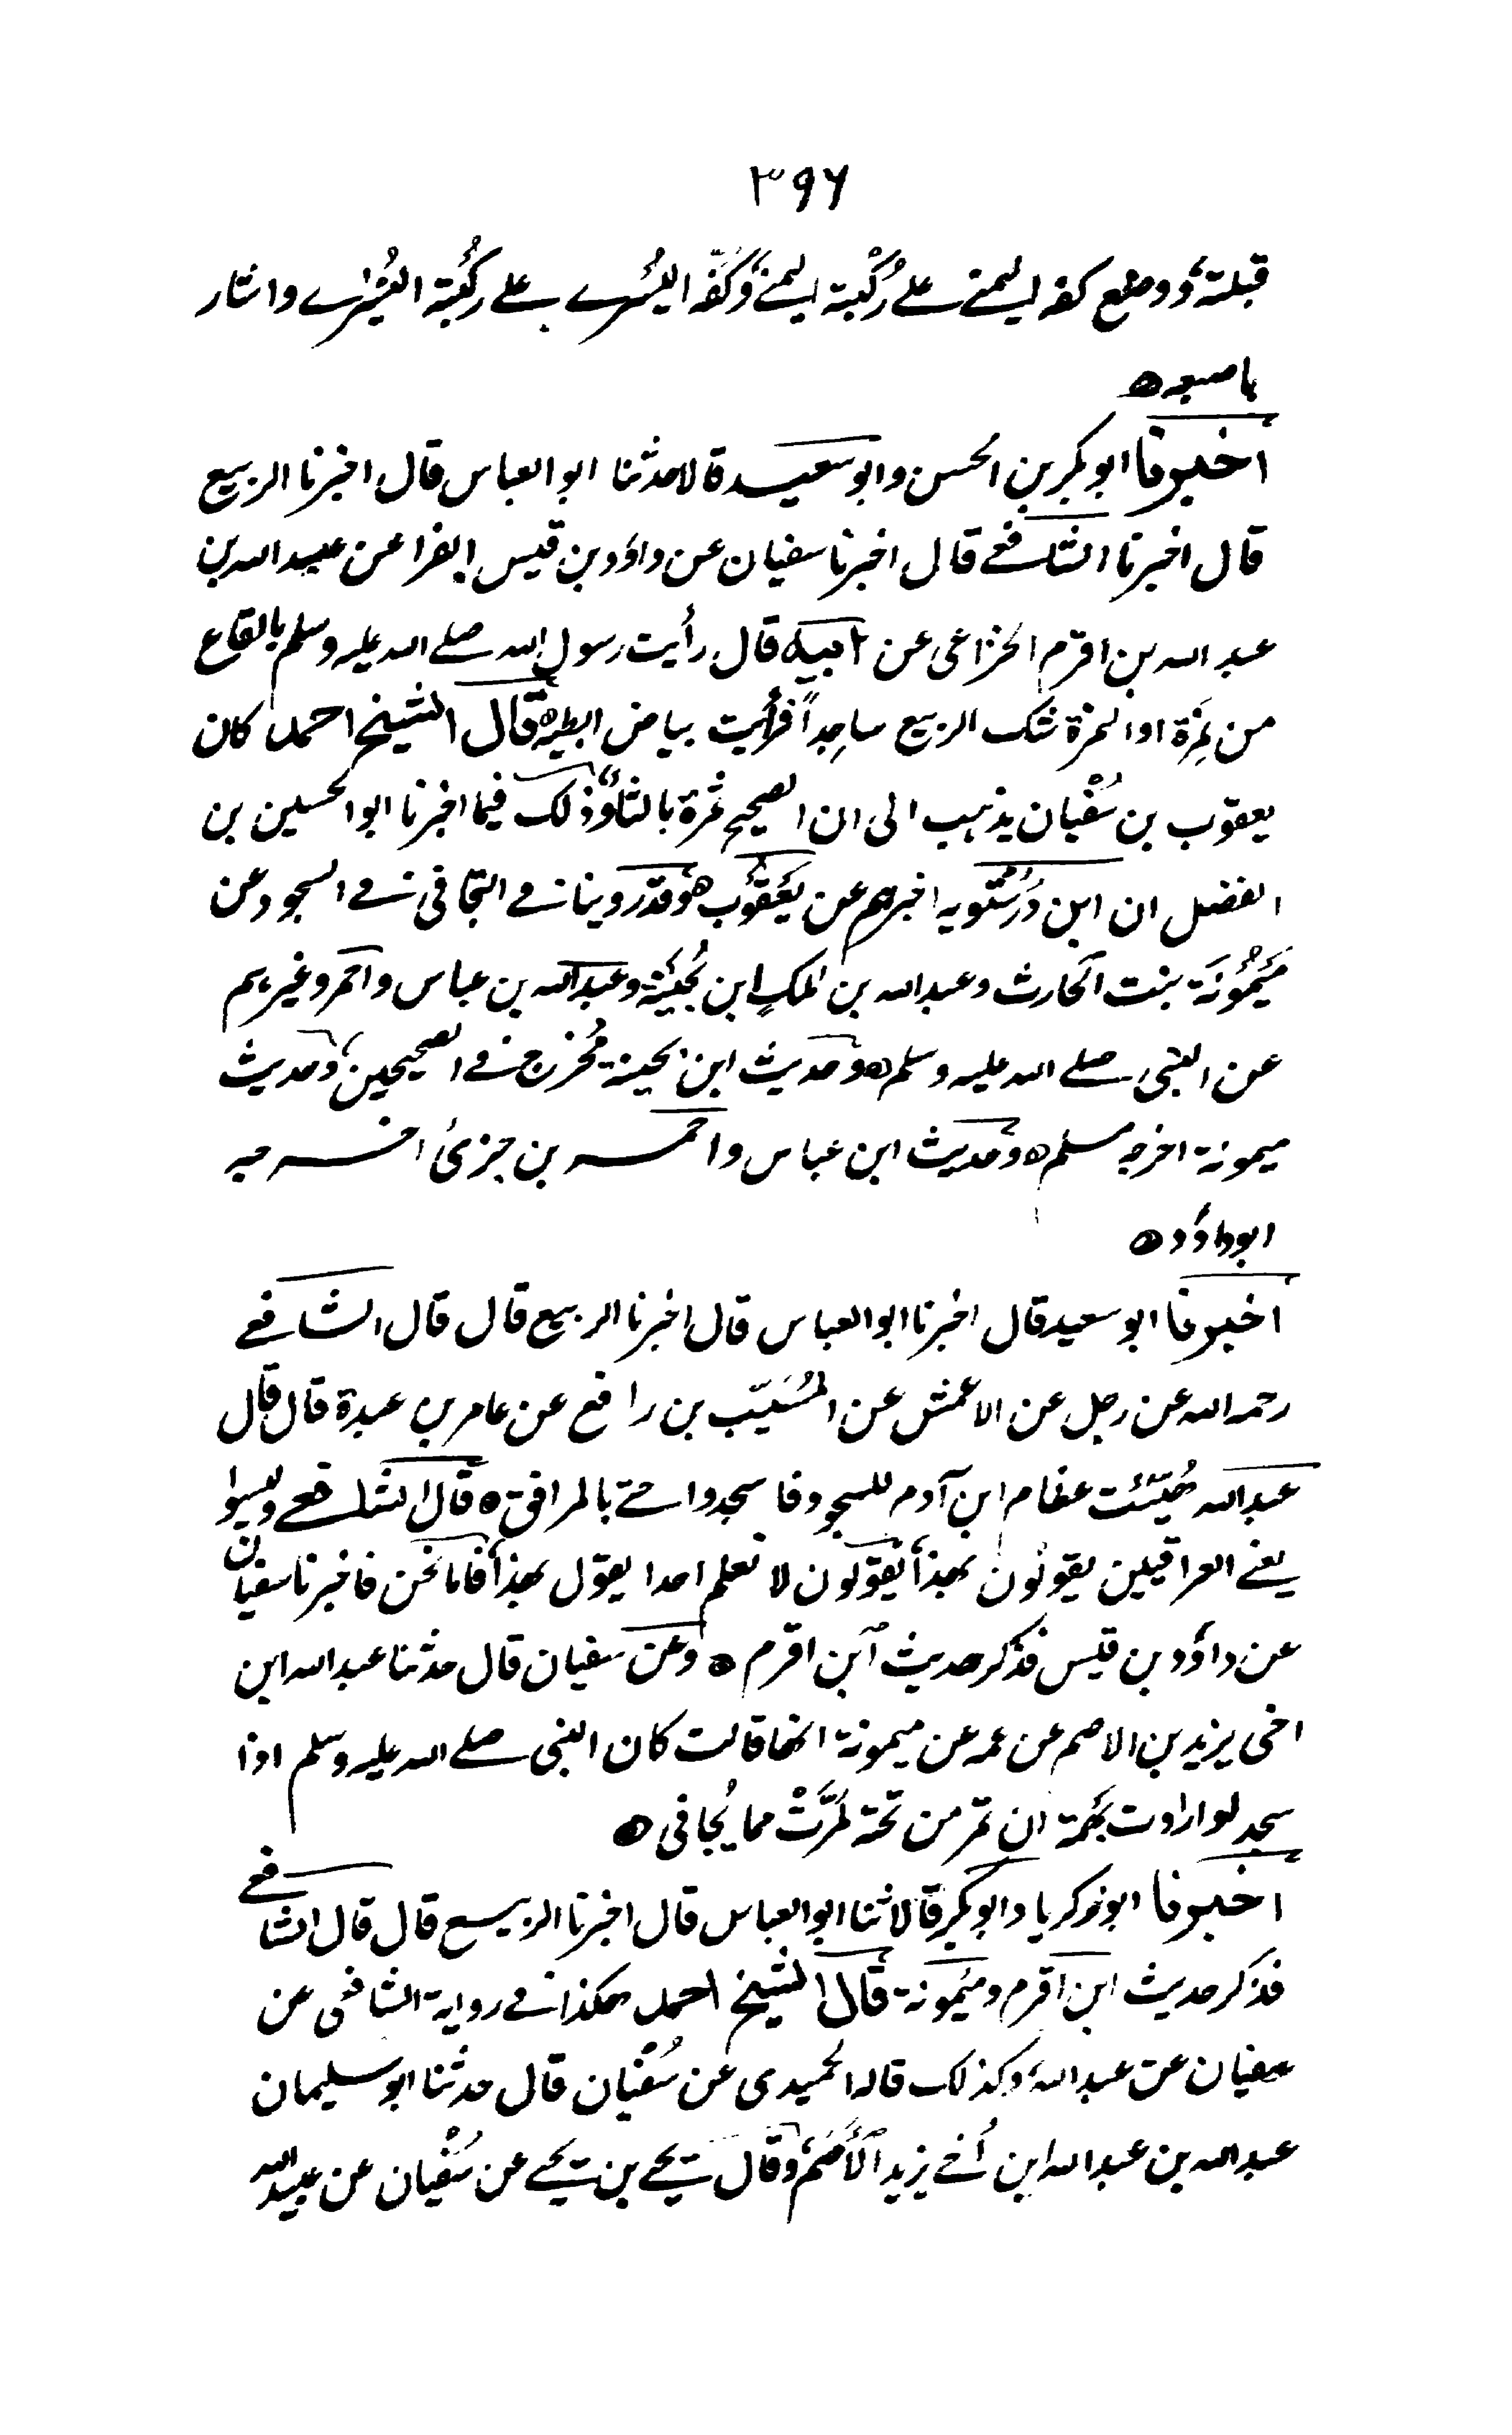 ٣٩٦
قبلته، ووضع كفه اليمنى على رُكْبته اليمنى، وكَفّه اليُسْرى على ركْبته اليُسْرى واشار
باصبعه ه
اخبرنا ابو بكر بن الحسن وابو سعيد قالا حدثنا ابو العباس قال اخبرنا الربيع
قال اخبرنا الشافعي قال اخبرنا سفيان عن داؤد بن قيس الفرا عن عبيد الله بن
عبد الله بن اقرم الخزاعى عن ابيه قال رأيت رسول الله صلى الله عليه وسلم بالقاع
من نَمِرَة او النمرة شك الربيع ساجِداً فرأيت بياض ابطيه ه قال الشيخ احمد كان
يعقوب بن سُفْيان يذهب الى ان الصحيح ثمرة بالثاء وذلك فيما اخبرنا ابو الحسين بن
الفضل ان ابن دُرُسْتُويه اخبرهم عن يَعْقُوب ه وقد روينا في التجافى في السجود عن
مَيْمُونَة بنت الحارث وعبد الله بن مالك ابن بُحَيْنَة وعبد الله بن عباس واحمر وغيرهم
عن النبى صلى الله عليه وسلم ه وحديث ابن بحينة مُخرج في الصحيحين، وحديث
ميمونة اخرجه مسلم ه وحديث ابن عباس واحمر بن جزئ اخرجه
ابو داؤد ه
اخبرنا ابو سعيد قال اخبرنا ابو العباس قال اخبرنا الربيع قال قال الشافعي
رحمه الله عن رجل عن الاعمش عن المُسَيّب بن رافع عن عامر بن عبدة قال قال
عبد الله هُيّئت عظام ابن آدم للسجود فاسجدوا حتى بالمرافق ه قال الشافعي وليسوا
يعني العراقيين يقولون بهذا، يقولون لا نعلم احدا يقول بهذا، فاما نحن فاخبرنا سفيان
عن داؤد بن قيس فذكر حديث ابن اقرم ه وعن سفيان قال حدثنا عبد الله ابن
اخى يزيد بن الاصم عن عمه عن ميمونة انها قالت كان النبى صلى الله عليه وسلم اذا
سجد لو ارادت بَهْمة ان تمر من تحته لمَرَّتْ مما يُجافى ه
اخبرنا ابو زكريا وابو بكر قالا ثنا ابو العباس قال اخبرنا الربيع قال قال الشافعي
فذكر حديث ابن اقرم ومَيْمونة قال الشيخ احمد هكذا في رواية الشافعى عن
سفيان عن عبد الله، وكذلك قاله الحميدى عن سُفْيان قال حدثنا ابو سليمان
عبد الله بن عبد الله ابن أخي يزيد الأصَمّ، وقال يحيى بن يحيى عن سُفْيان عن عبيد الله